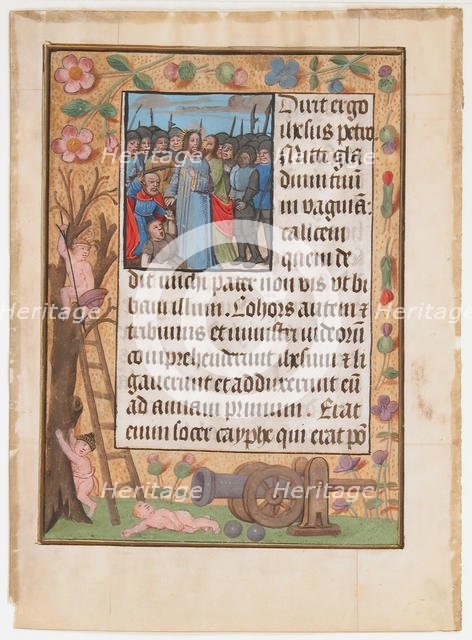 Dixit ergo
ihesus petro
Mitte gla
dium tuum
in vaginā:
calicem
quem de
dit michi pater non vis vt bi
bam illum. Cohors autem et
tribunus et ministri iudeorū
comprehenderunt ihesum et li
gauerunt et adduxerunt eū
ad annam primum. Erat
enim socer cayphe qui erat pō
Heritage
Heritage
Heritage
Heritage
Heritage
Heritage
Heritage
Heritage